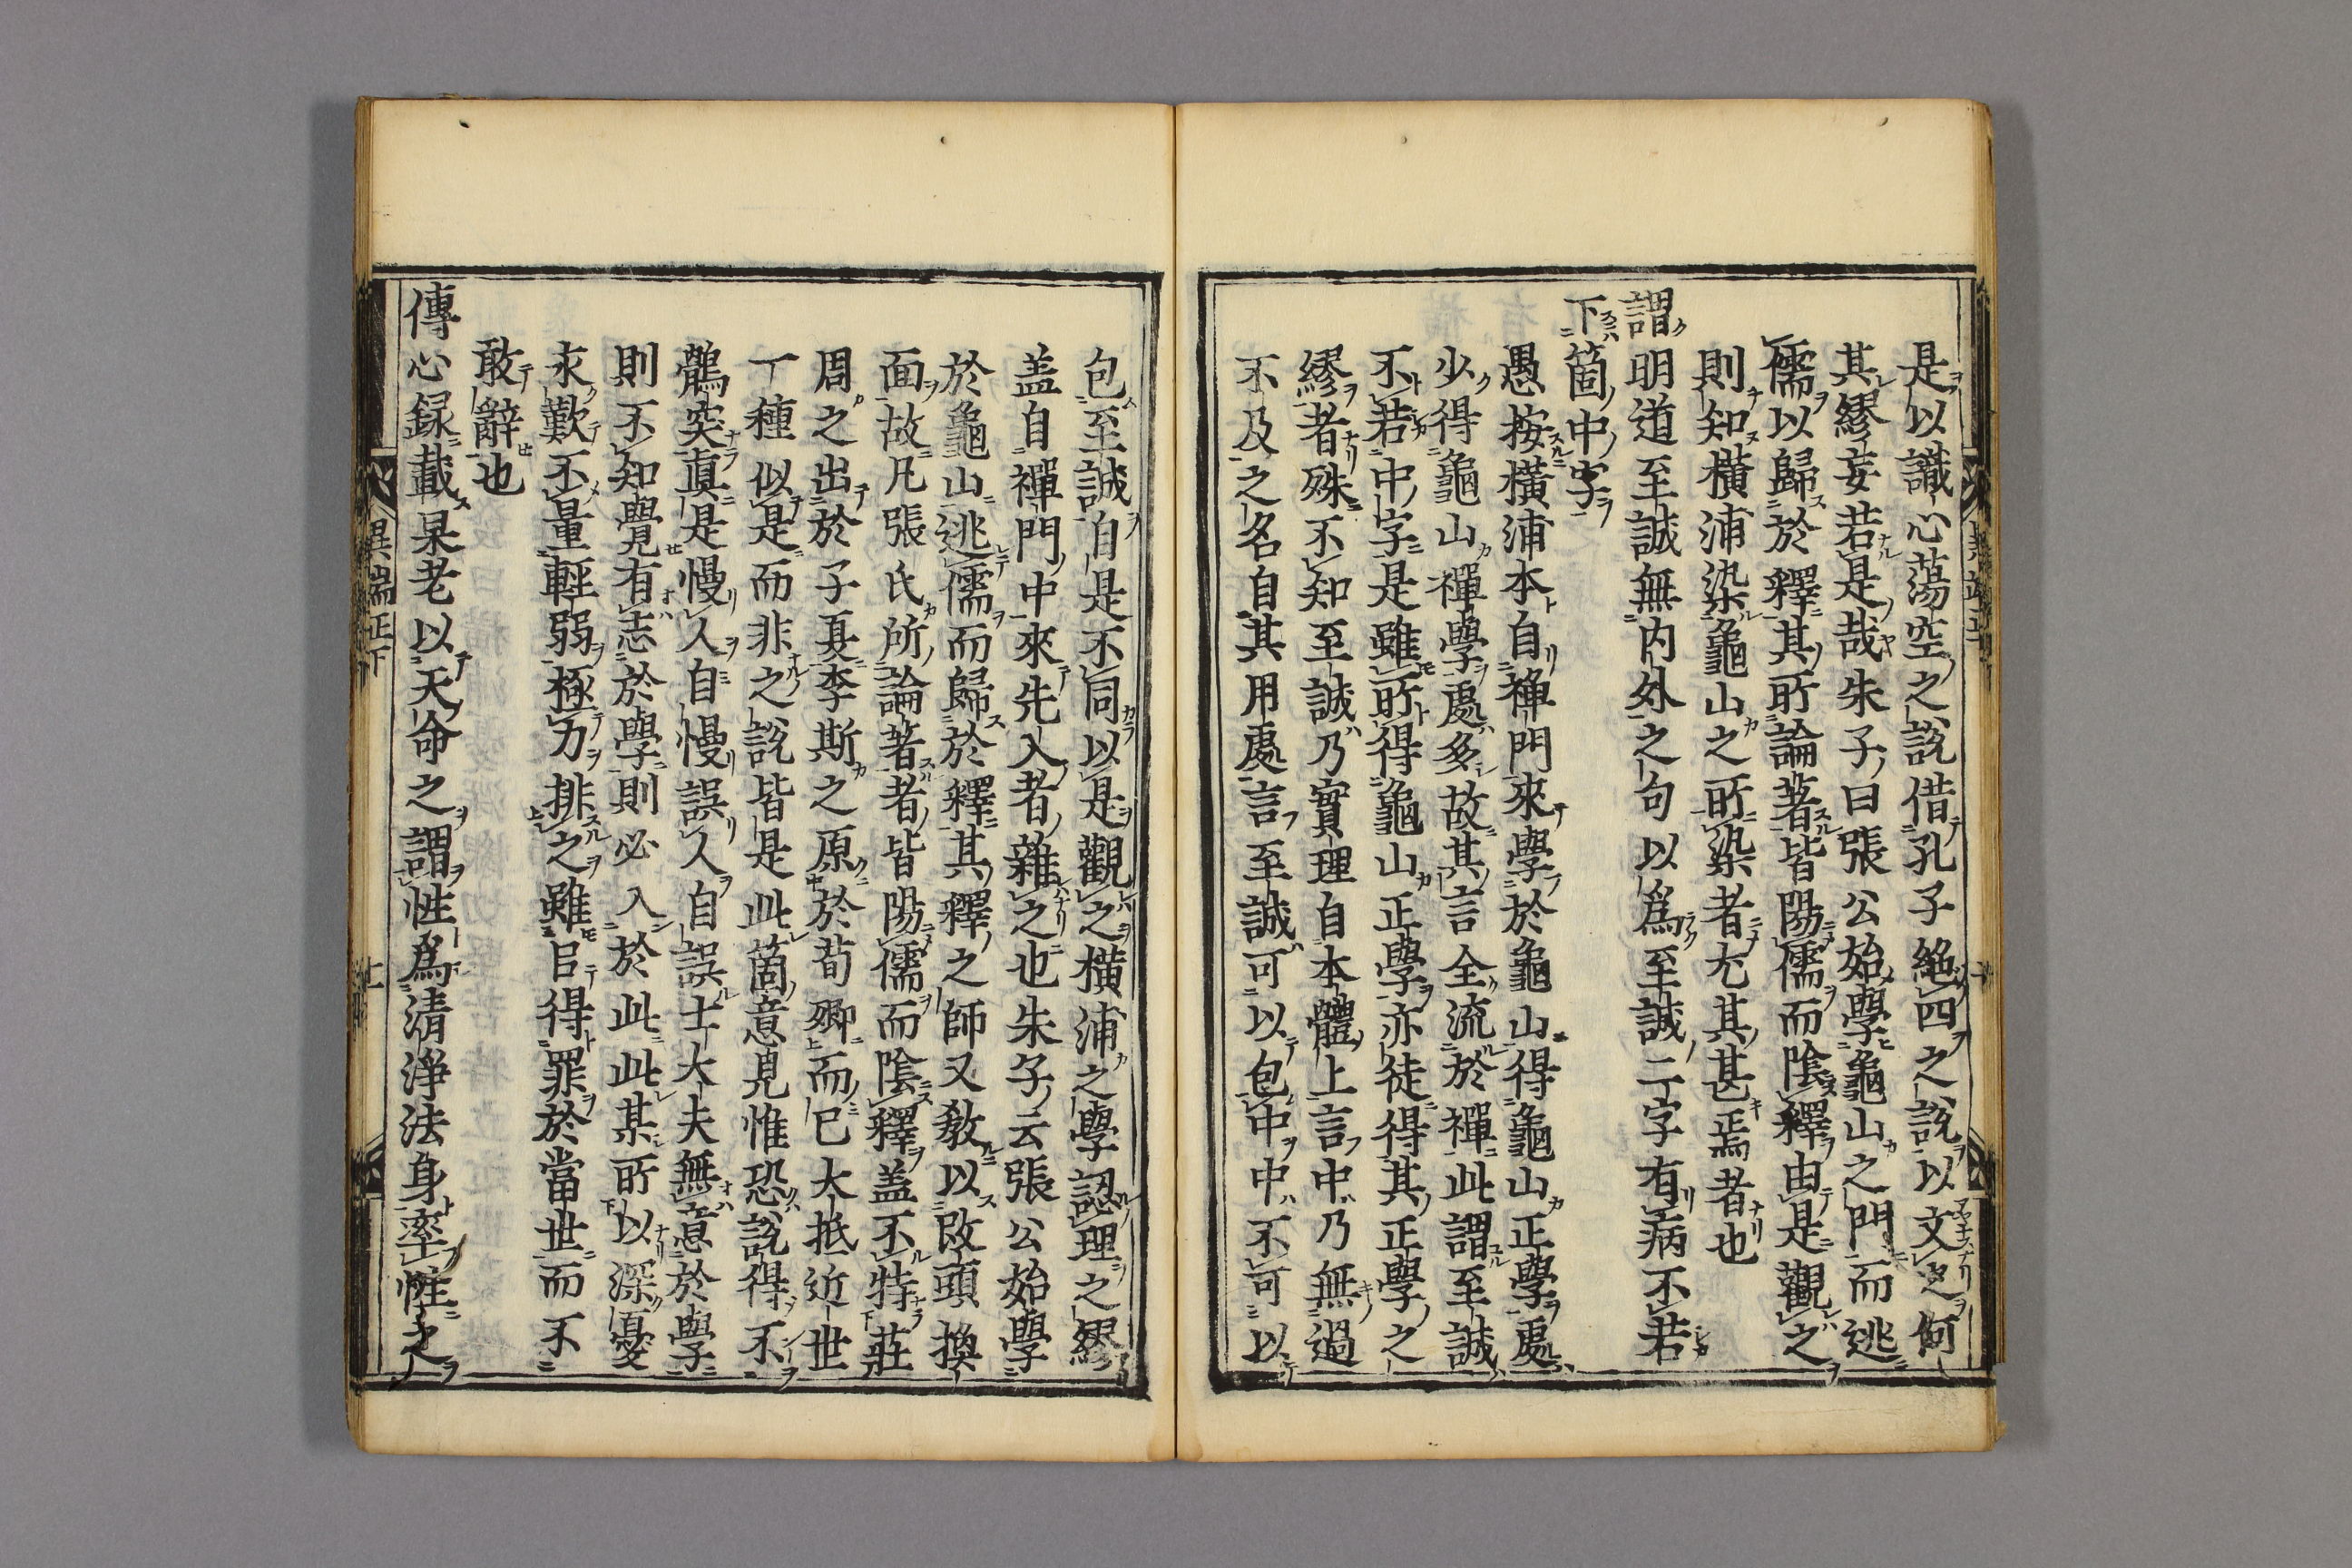 是以識心蕩空之說借孔子絶四之說以文之何
其繆妄若是哉朱子曰張公始學龜山之門而逃
儒以歸於釋其所論著皆陽儒而陰釋由是觀之
則知橫浦染龜山之所染者尤其甚焉者也
謂明道至誠無内外之句以爲至誠二字有病不若
下箇中字
愚按橫浦本自禅門來學於龜山得龜山正學處
少得龜山禪學處多故其言全流於禪此謂至誠
不若中字是雖所得龜山正學亦徒得其正學之
繆者殊不知至誠乃實理自本體上言中乃無過
不及之名自其用處言至誠可以包中中不可以
包至誠自是不同以是觀之橫浦之學認理之繆
盖自禪門中來先入者雜之也朱子云張公始學
於龜山逃儒而歸於釋其釋之師又敎以改頭換
面故凡張氏所論著者皆陽儒而陰釋盖不特莊
周之出於子夏李斯之原於荀卿而已大抵近世
一種似是而非之說皆是此箇意見惟恐說得不
鶻突真是慢人自慢誤人自誤士大夫無意於學
則不知覺有志於學則必入於此此某所以深憂
永歎不量輕弱極力排之雖㠯得罪於當世而不
敢辭也
傳心録載杲老以天命之謂性爲清淨法身率性之
異端正下